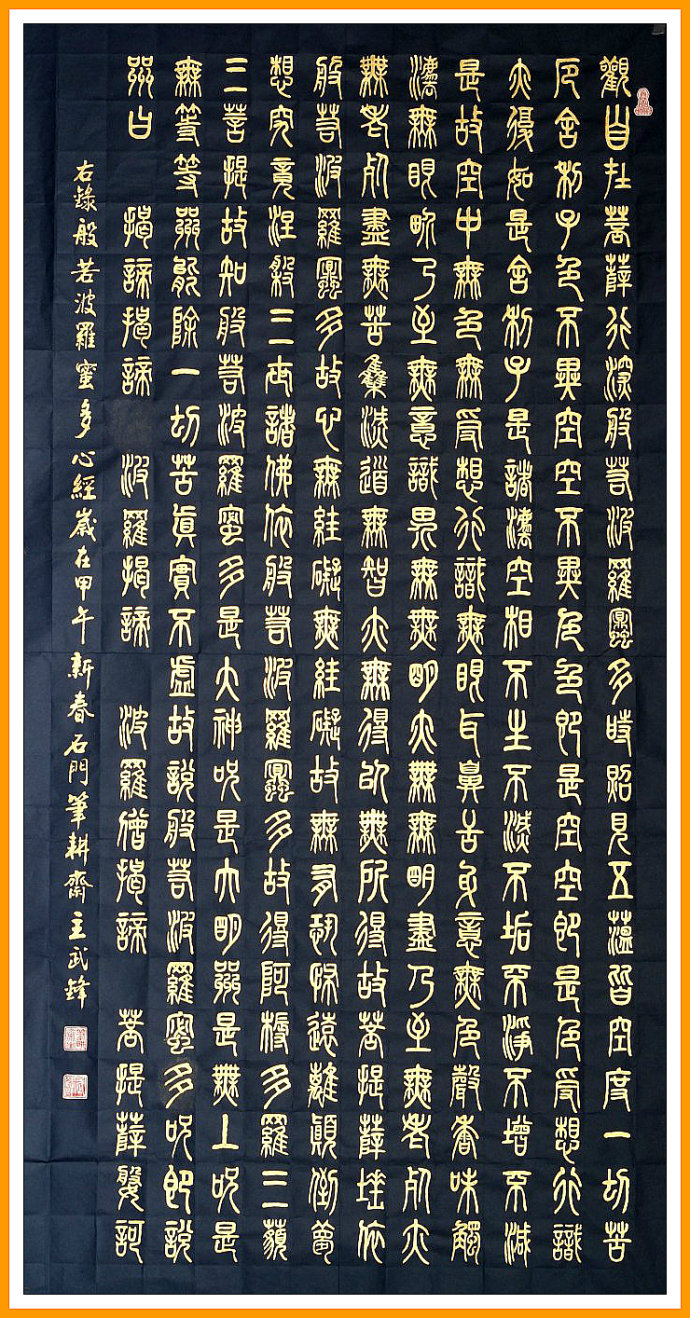 觀自在菩薩行深般若波羅蜜多時照見五蘊皆空度一切苦
厄舍利子色不異空空不異色色即是空空即是色受想行識
亦復如是舍利子是諸法空相不生不滅不垢不淨不增不減
是故空中無色無受想行識無眼耳鼻舌身意無色聲香味觸
法無眼界乃至無意識界無無明亦無無明盡乃至無老死亦
無老死盡無苦集滅道無智亦無得以無所得故菩提薩埵依
般若波羅蜜多故心無絓礙無絓礙故無有恐怖遠離顛倒夢
想究竟涅槃三世諸佛依般若波羅蜜多故得阿耨多羅三藐
三菩提故知般若波羅蜜多是大神呪是大明呪是無上呪是
無等等呪能除一切苦真實不虛故說般若波羅蜜多呪即說
呪曰 揭諦揭諦 波羅揭諦 波羅僧揭諦 菩提薩婆訶
右錄般若波羅蜜多心經歲在甲午新春石門筆耕齋主武鋒